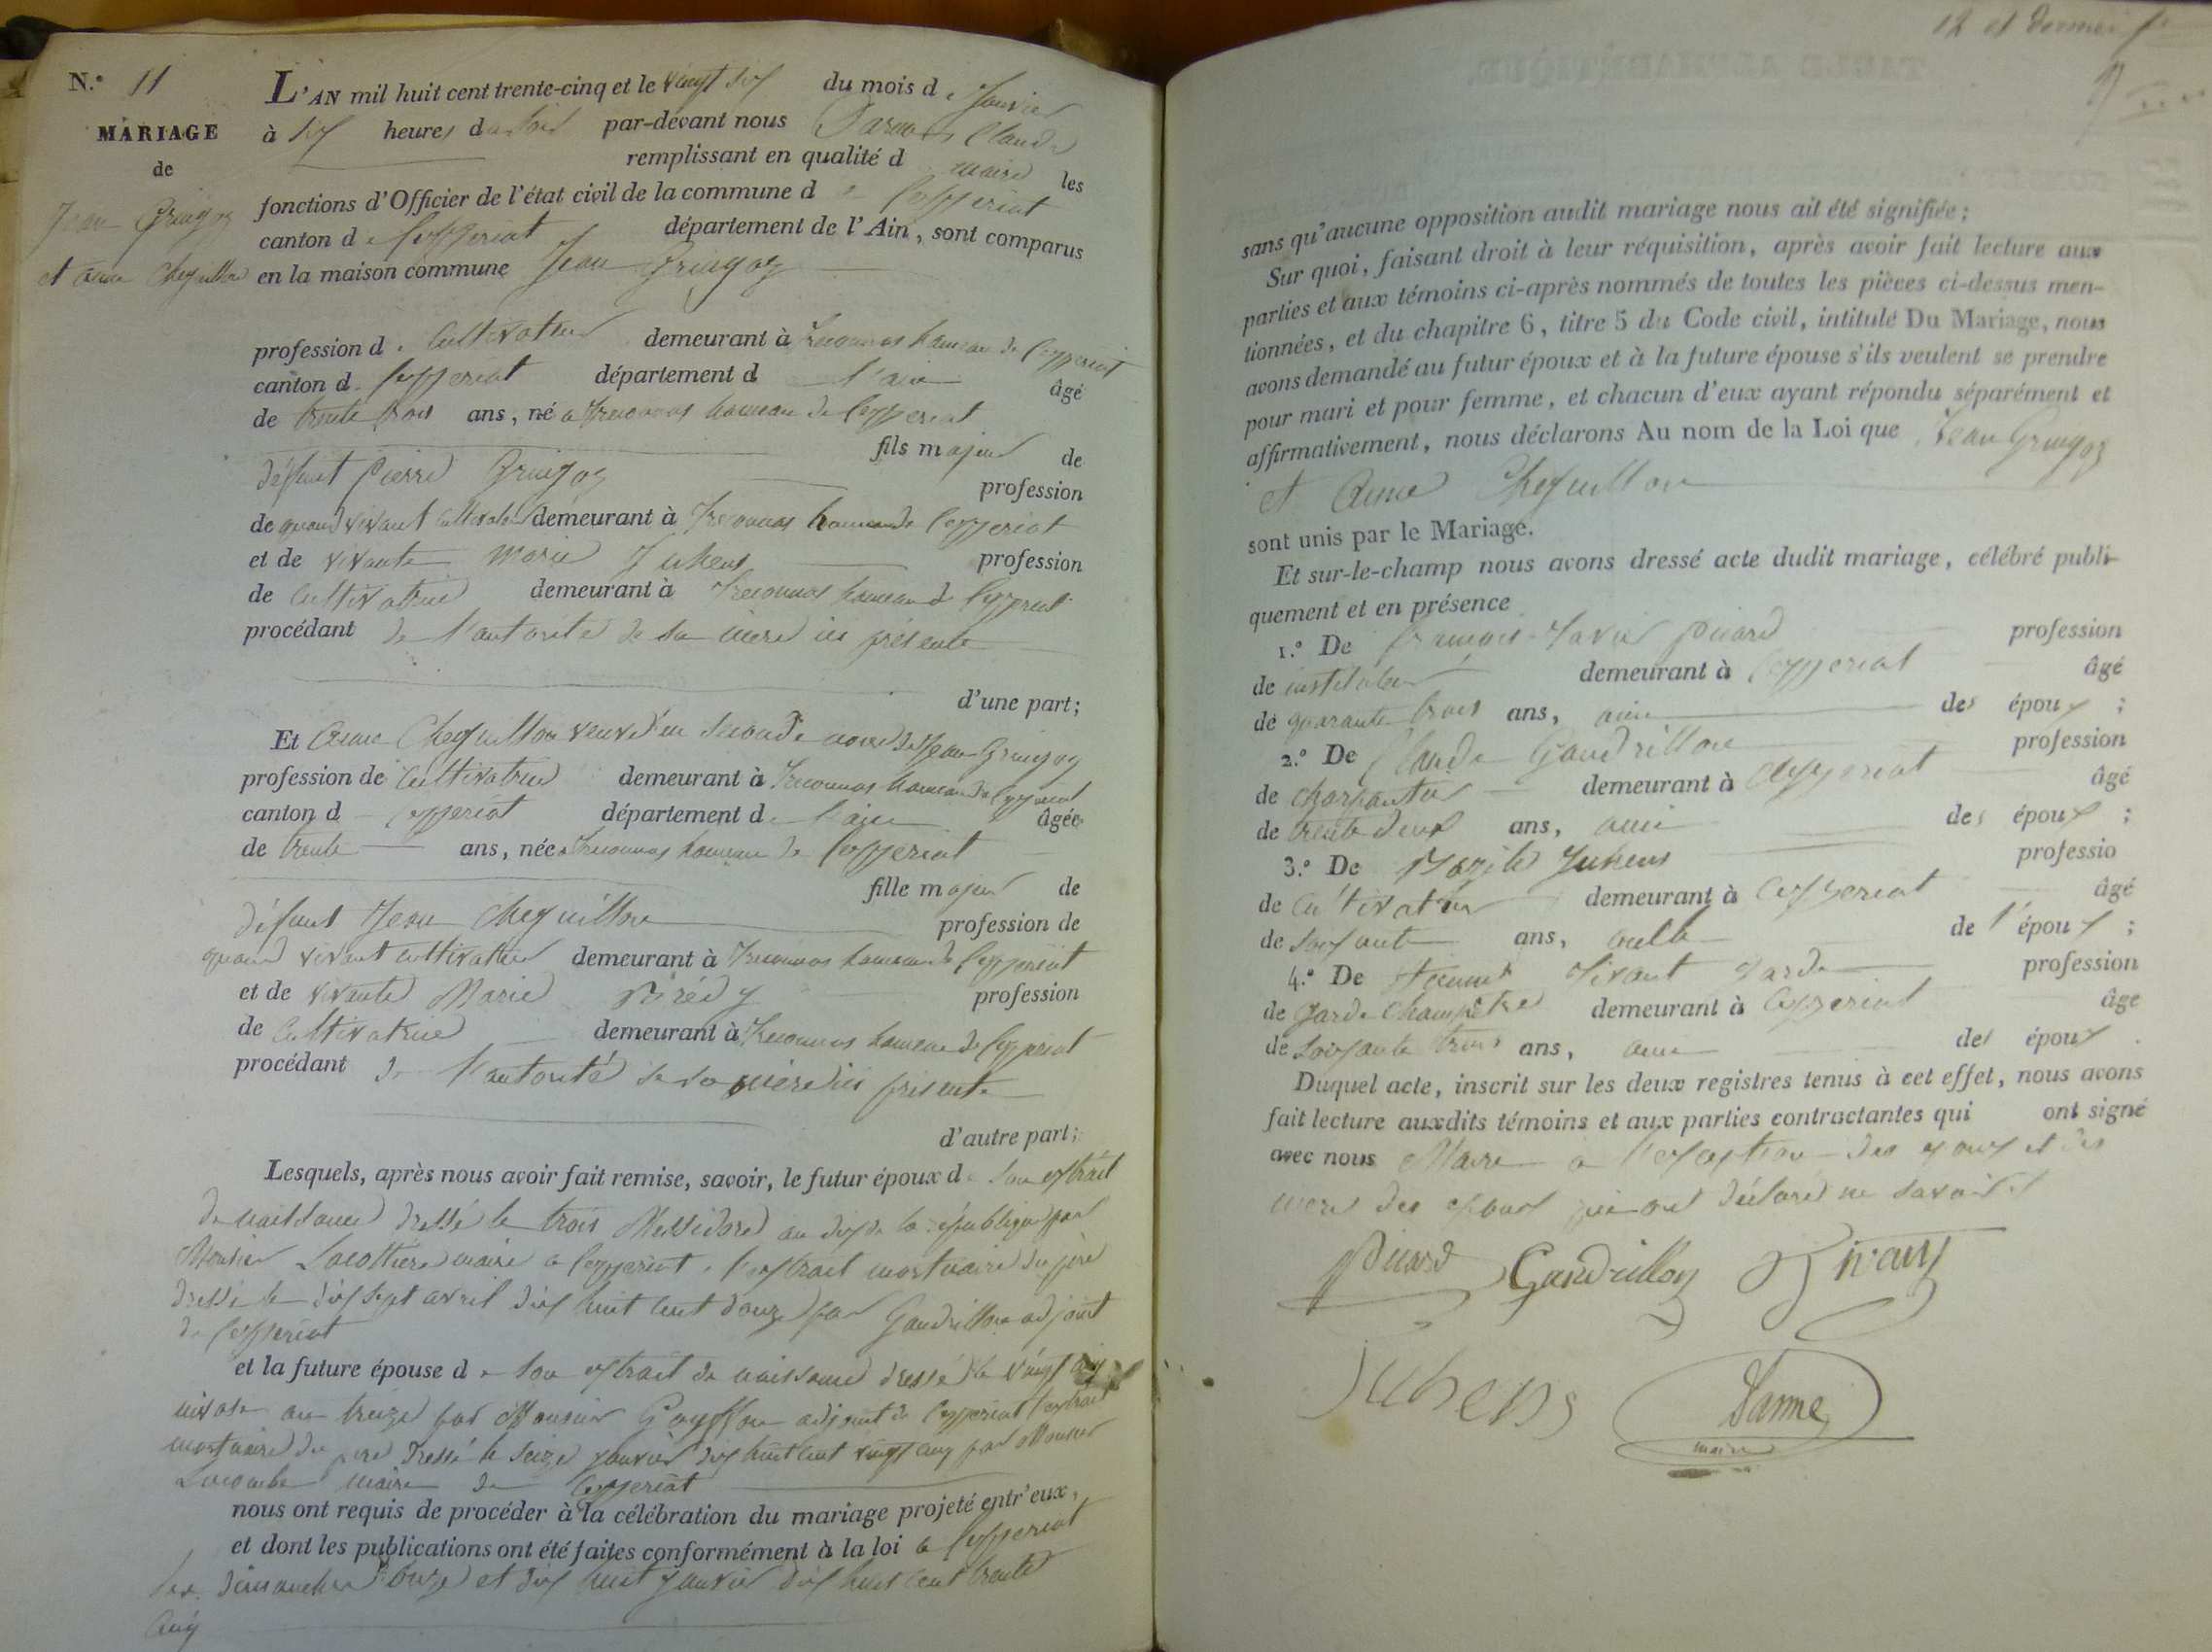 N.° 11
MARIAGE
de
Jean Gringoz
et Anne Chepillon
L'AN mil huit cent trente-cinq et le vingt six du mois de Janvier
à six heures du soir par-devant nous Claude
remplissant en qualité de maire les
fonctions d'Officier de l'état civil de la commune de Ceyzeriat
canton de Ceyzeriat département de l'Ain, sont comparus
en la maison commune Jean Gringoz
profession de Cultivateur demeurant à Treconnas hameau de Ceyzeriat
canton d Ceyzeriat département d l'ain âgé
de trente trois ans, né a Treconnas hameau de Ceyzeriat
fils majeur de
défunt Pierre Gringoz profession
de quand vivant cultivateur demeurant à Treconnas hameau de Ceyzeriat
et de vivante Marie Juhens profession
de Cultivatrice demeurant à Treconnas hameau de Ceyzeriat
procédant de l'autorité de sa mere ici présente
d'une part;
Et Anne veuve en seconde noce de Jean Gringoz
profession de cultivatrice demeurant à Treconnas hameau de Ceyzeriat
canton d Ceyzeriat département de l'ain âgée
de trente ans, née a Treconnas hameau de Ceyzeriat
fille majeur de
défunt Jean profession de
quand vivant cultivateur demeurant à Treconnas hameau de Ceyzeriat
et de vivante Marie profession
de Cultivatrice demeurant à Treconnas hameau de Ceyzeriat
procédant de l'autorité de sa mere ici présente
d'autre part;
Lesquels, après nous avoir fait remise, savoir, le futur époux de son extrait
de naissance dressé le trois Messidore an dix de la république par
Monsieur maire a Ceyzeriat, l'extrait mortuaire du père
dressé le dix sept avril dix huit cent douze par Gaudrillon adjoint
de Ceyzeriat
et la future épouse de son extrait de naissance dressé le vingt cinq
nivose an treize par Monsieur adjoint de Ceyzeriat l'extrait
mortuaire du père dressé le seize janvier dix huit cent vingt cinq par Monsieur
maire de Ceyzeriat
nous ont requis de procéder à la célébration du mariage projeté entr'eux,
et dont les publications ont été faites conformément à la loi a Ceyzeriat
les dimanches onze et dix huit janvier dix huit cent trente
cinq
12 et dernier f.
sans qu'aucune opposition audit mariage nous ait été signifiée;
Sur quoi, faisant droit à leur réquisition, après avoir fait lecture aux
parties et aux témoins ci-après nommés de toutes les pièces ci-dessus men-
tionnées, et du chapitre 6, titre 5 du Code civil, intitulé Du Mariage, nous
avons demandé au futur époux et à la future épouse s'ils veulent se prendre
pour mari et pour femme, et chacun d'eux ayant répondu séparément et
affirmativement, nous déclarons Au nom de la Loi que Jean Gringoz
et Anne
sont unis par le Mariage.
Et sur-le-champ nous avons dressé acte dudit mariage, célébré publi-
quement et en présence
1.° De François Xavier Picard profession
de instituteur demeurant à Ceyzeriat âgé
de quarante trois ans, ami des époux;
2.° De Claude Gaudrillon profession
de charpentier demeurant à Ceyzeriat âgé
de trente deux ans, ami des époux;
3.° De Juhens professio
de Cultivateur demeurant à Ceyzeriat âgé
de soixante ans, de l'époux;
4.° De profession
de Garde Champêtre demeurant à Ceyzeriat âge
de soixante trois ans, ami des époux.
Duquel acte, inscrit sur les deux registres tenus à cet effet, nous avons
fait lecture auxdits témoins et aux parties contractantes qui ont signé
avec nous Maire a l'exception des epoux et des
mere des epoux qui ont déclaré ne savoir
Picard Gaudrillon
Juhens
maire